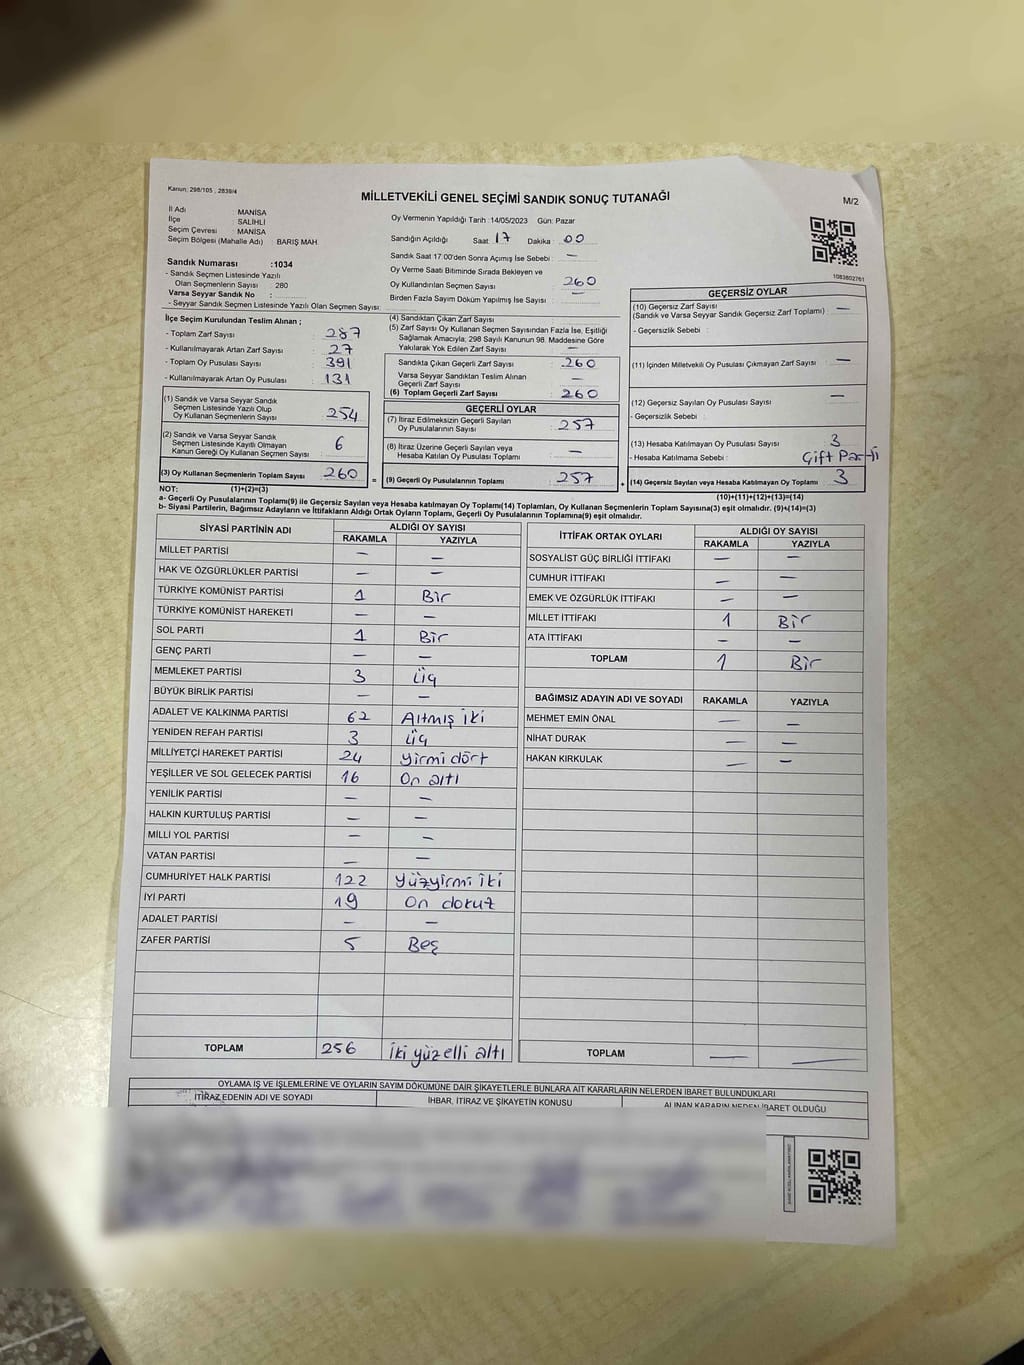 Kanun: 298/105 , 2839/4
MİLLETVEKİLİ GENEL SEÇİMİ SANDIK SONUÇ TUTANAĞI
M/2
İl Adı : MANİSA
İlçe : SALİHLİ
Seçim Çevresi : MANİSA
Seçim Bölgesi (Mahalle Adı) : BARIŞ MAH.
Sandık Numarası :1034
- Sandık Seçmen Listesinde Yazılı
Olan Seçmenlerin Sayısı : 280
Varsa Seyyar Sandık No :
- Seyyar Sandık Seçmen Listesinde Yazılı Olan Seçmen Sayısı:
Oy Vermenin Yapıldığı Tarih :14/05/2023 Gün: Pazar
Sandığın Açıldığı Saat : 17 Dakika : 00
Sandık Saat 17:00'den Sonra Açımış İse Sebebi : —
Oy Verme Saati Bitiminde Sırada Bekleyen ve
Oy Kullandırılan Seçmen Sayısı : 260
Birden Fazla Sayım Döküm Yapılmış İse Sayısı : —
1083802761
İlçe Seçim Kurulundan Teslim Alınan ;
- Toplam Zarf Sayısı : 287
- Kullanılmayarak Artan Zarf Sayısı : 27
- Toplam Oy Pusulası Sayısı : 391
- Kullanılmayarak Artan Oy Pusulası : 131
(1) Sandık ve Varsa Seyyar Sandık
Seçmen Listesinde Yazılı Olup
Oy Kullanan Seçmenlerin Sayısı : 254
(2) Sandık ve Varsa Seyyar Sandık
Seçmen Listesinde Kayıtlı Olmayan
Kanun Gereği Oy Kullanan Seçmen Sayısı : 6
(3) Oy Kullanan Seçmenlerin Toplam Sayısı : 260
(4) Sandıktan Çıkan Zarf Sayısı :
(5) Zarf Sayısı Oy Kullanan Seçmen Sayısından Fazla İse, Eşitliği
Sağlamak Amacıyla; 298 Sayılı Kanunun 98. Maddesine Göre
Yakılarak Yok Edilen Zarf Sayısı : —
Sandıkta Çıkan Geçerli Zarf Sayısı : 260
Varsa Seyyar Sandıktan Teslim Alınan
Geçerli Zarf Sayısı : —
(6) Toplam Geçerli Zarf Sayısı : 260
GEÇERLİ OYLAR
(7) İtiraz Edilmeksizin Geçerli Sayılan
Oy Pusulalarının Sayısı : 257
(8) İtiraz Üzerine Geçerli Sayılan veya
Hesaba Katılan Oy Pusulası Toplamı : —
= (9) Geçerli Oy Pusulalarının Toplamı : 257 +
GEÇERSİZ OYLAR
(10) Geçersiz Zarf Sayısı
(Sandık ve Varsa Seyyar Sandık Geçersiz Zarf Toplamı) : —
- Geçersizlik Sebebi :
(11) İçinden Milletvekili Oy Pusulası Çıkmayan Zarf Sayısı : —
(12) Geçersiz Sayılan Oy Pusulası Sayısı : —
- Geçersizlik Sebebi :
(13) Hesaba Katılmayan Oy Pusulası Sayısı : 3
- Hesaba Katılmama Sebebi : Çift Parti
(14) Geçersiz Sayılan veya Hesaba Katılmayan Oy Toplamı : 3
NOT: (1)+(2)=(3)
(10)+(11)+(12)+(13)=(14)
a- Geçerli Oy Pusulalarının Toplamı(9) ile Geçersiz Sayılan veya Hesaba Katılmayan Oy Toplamı(14) Toplamları, Oy Kullanan Seçmenlerin Toplam Sayısına(3) eşit olmalıdır. (9)+(14)=(3)
b- Siyasi Partilerin, Bağımsız Adayların ve İttifakların Aldığı Ortak Oyların Toplamı, Geçerli Oy Pusulalarının Toplamına(9) eşit olmalıdır.
SİYASİ PARTİNİN ADI ALDIĞI OY SAYISI
RAKAMLA YAZIYLA
MİLLET PARTİSİ — —
HAK VE ÖZGÜRLÜKLER PARTİSİ — —
TÜRKİYE KOMÜNİST PARTİSİ 1 Bir
TÜRKİYE KOMÜNİST HAREKETİ — —
SOL PARTİ 1 Bir
GENÇ PARTİ — —
MEMLEKET PARTİSİ 3 Üç
BÜYÜK BİRLİK PARTİSİ — —
ADALET VE KALKINMA PARTİSİ 62 Altmış iki
YENİDEN REFAH PARTİSİ 3 Üç
MİLLİYETÇİ HAREKET PARTİSİ 24 yirmi dört
YEŞİLLER VE SOL GELECEK PARTİSİ 16 On altı
YENİLİK PARTİSİ — —
HALKIN KURTULUŞ PARTİSİ — —
MİLLİ YOL PARTİSİ — —
VATAN PARTİSİ — —
CUMHURİYET HALK PARTİSİ 122 Yüzyirmi iki
İYİ PARTİ 19 On dokuz
ADALET PARTİSİ — —
ZAFER PARTİSİ 5 Beş
TOPLAM 256 iki yüzelli altı
İTTİFAK ORTAK OYLARI ALDIĞI OY SAYISI
RAKAMLA YAZIYLA
SOSYALİST GÜÇ BİRLİĞİ İTTİFAKI — —
CUMHUR İTTİFAKI — —
EMEK VE ÖZGÜRLÜK İTTİFAKI — —
MİLLET İTTİFAKI 1 Bir
ATA İTTİFAKI — —
TOPLAM 1 Bir
BAĞIMSIZ ADAYIN ADI VE SOYADI RAKAMLA YAZIYLA
MEHMET EMİN ÖNAL — —
NİHAT DURAK — —
HAKAN KIRKULAK — —
TOPLAM — —
OYLAMA İŞ VE İŞLEMLERİNE VE OYLARIN SAYIM DÖKÜMÜNE DAİR ŞİKAYETLERLE BUNLARA AİT KARARLARIN NELERDEN İBARET BULUNDUKLARI
İTİRAZ EDENİN ADI VE SOYADI İHBAR, İTİRAZ VE ŞİKAYETİN KONUSU ALINAN KARARIN NEDEN İBARET OLDUĞU